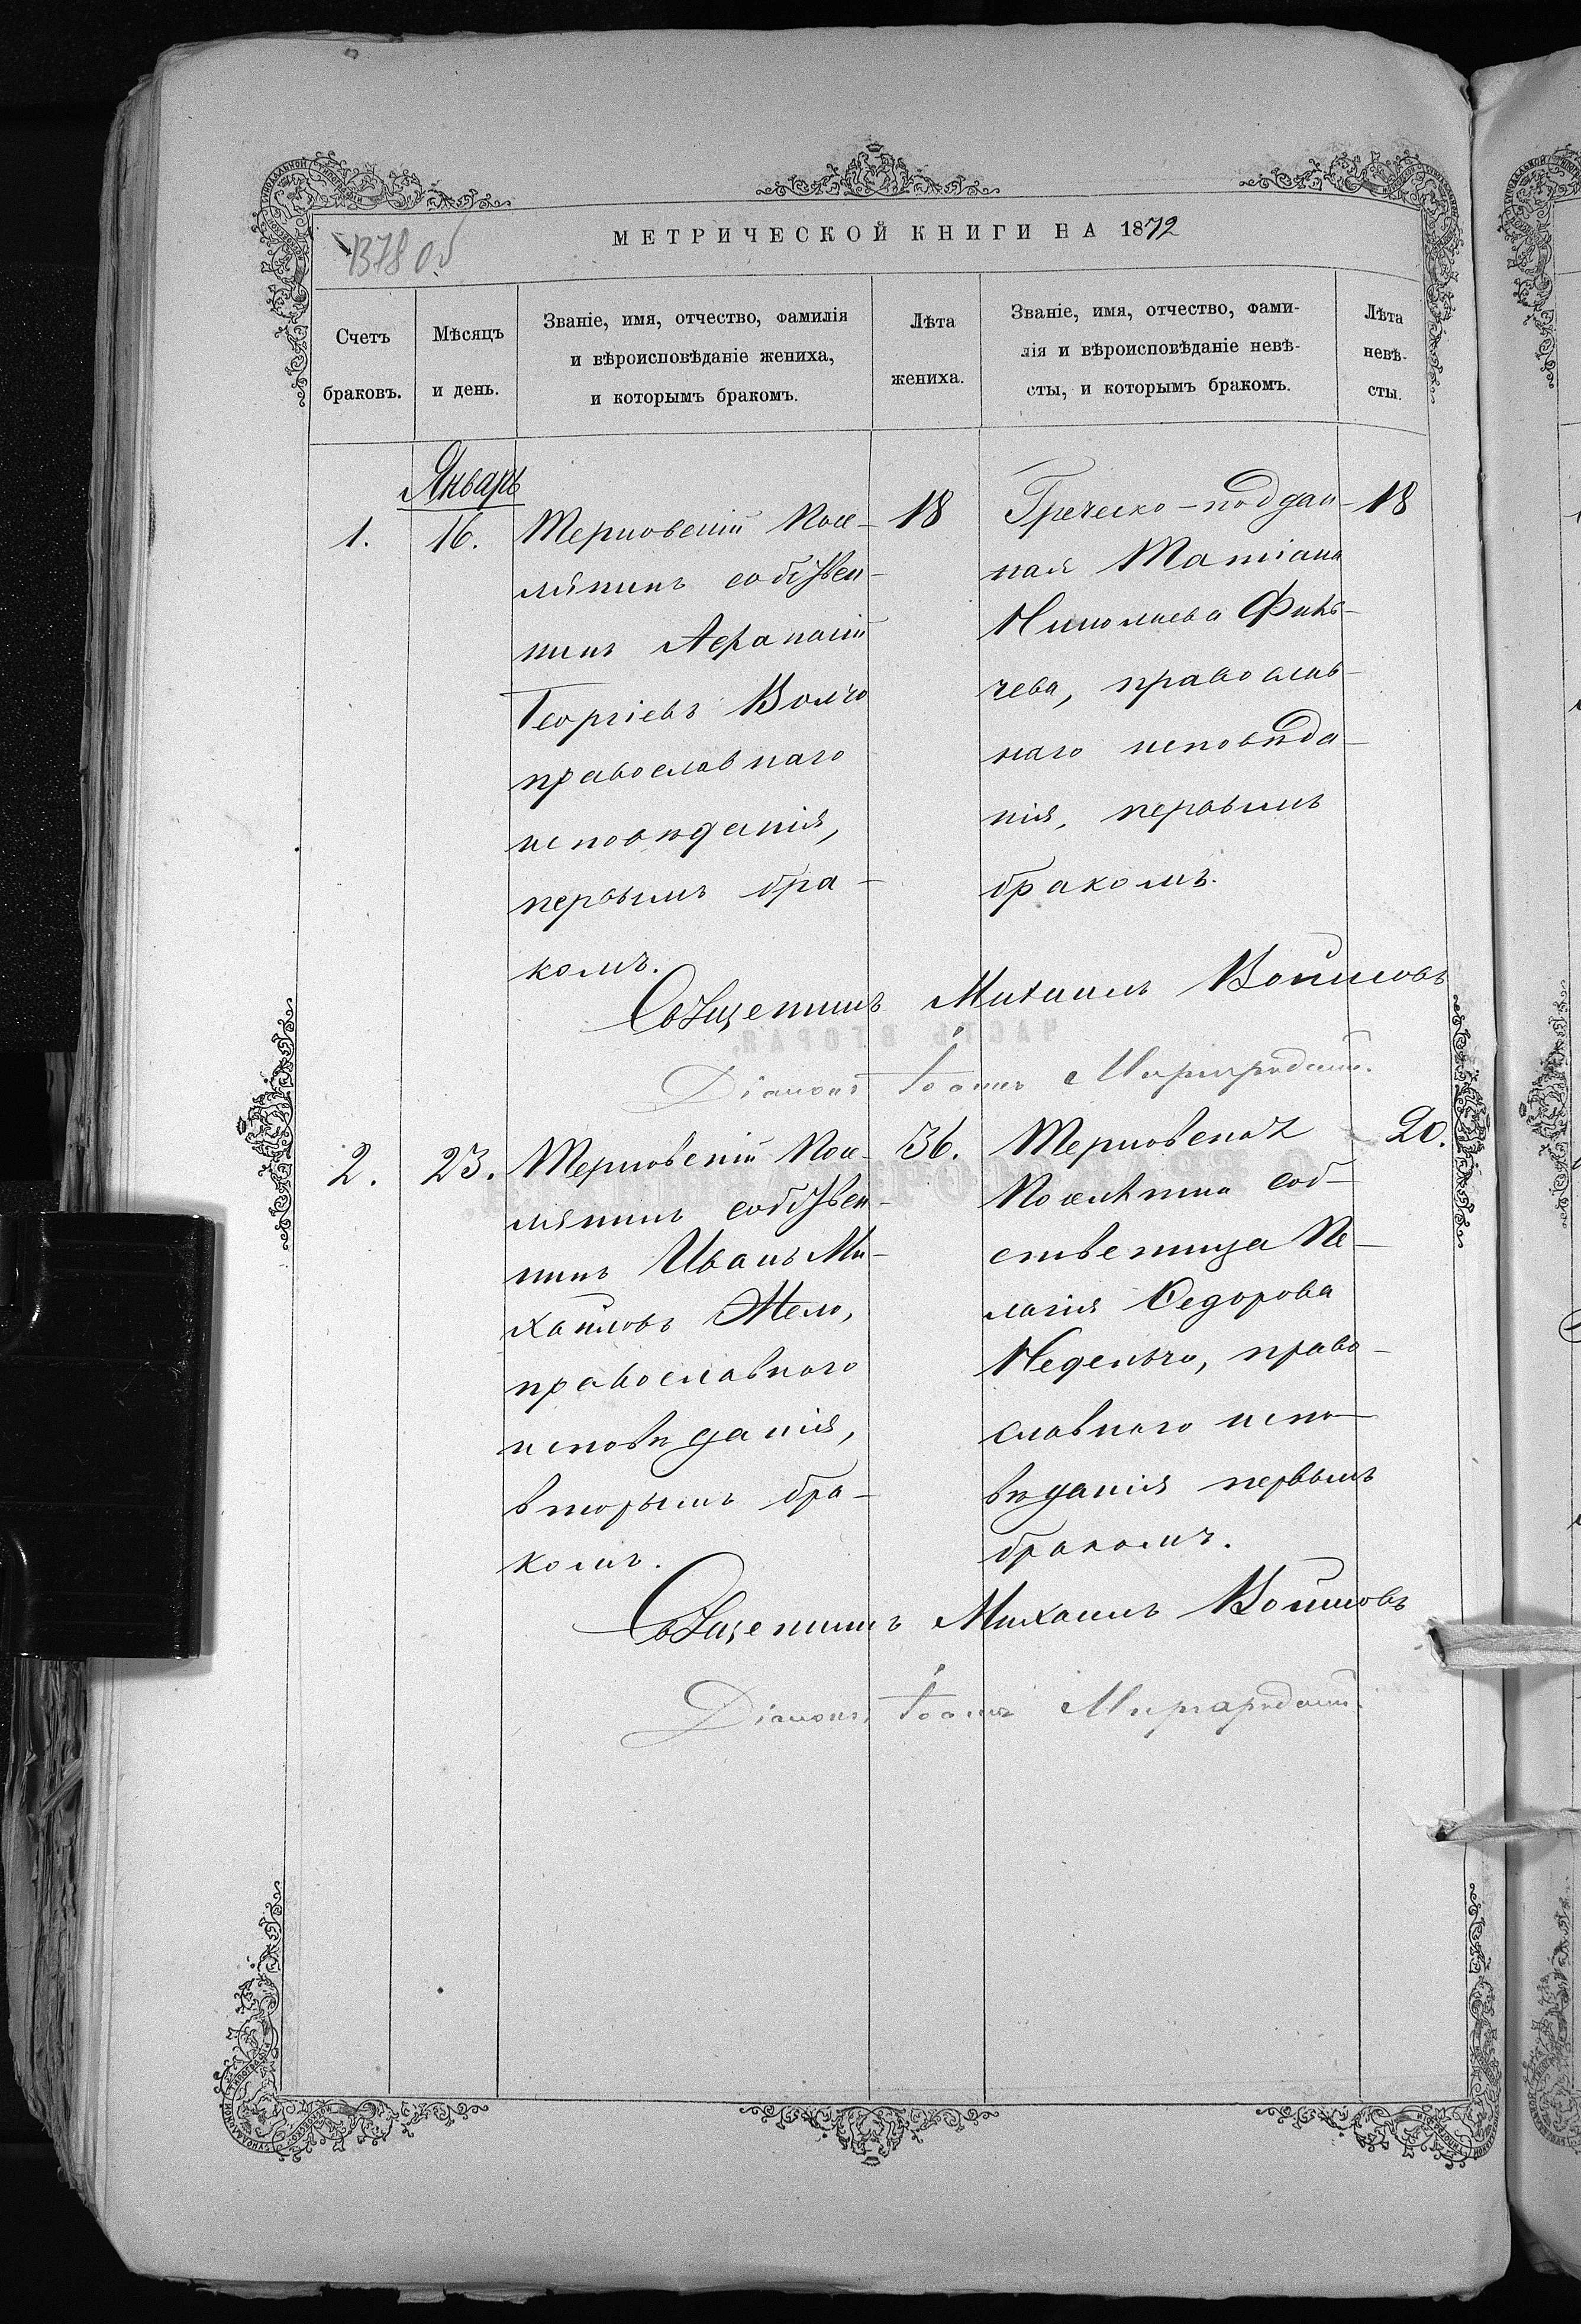 1378 об
МЕТРИЧЕСКОЙ КНИГИ НА 1872
Счетъ
браковъ.
Мѣсяцъ
и день.
Званіе, имя, отчество, фамилія
и вѣроисповѣданіе жениха,
и которымъ бракомъ.
Лѣта
жениха.
Званіе, имя, отчество, фами-
лія и вѣроисповѣданіе невѣ-
сты, и которымъ бракомъ.
Лѣта
невѣ-
сты.
Январь
1.
16.
Терновскій Посе-
лянинъ собствен-
никъ Афанасій
Георгіевъ Волчо
православнаго
исповѣданія,
первымъ бра-
комъ.
18
Греческо-поддан-
ная Татіана
Николаева
чева, православ-
наго исповѣда-
нія, первымъ
бракомъ.
18
Священникъ Михаилъ Войновъ
Діаконъ Іоаннъ
2.
23.
Терновскій Посе-
лянинъ собствен-
никъ Иванъ Ми-
хайловъ Жело,
православнаго
исповѣданія,
вторымъ бра-
комъ.
36.
Терновская
Поселянка соб-
ственница Пе-
лагія Федорова
Неделчо, право-
славнаго испо-
вѣданія первымъ
бракомъ.
20.
Священникъ Михаилъ Войновъ
Діаконъ Іоаннъ